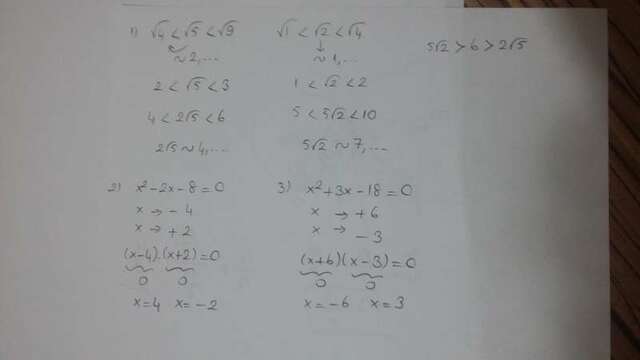 1) √4 < √5 < √9
~2,...
2 < √5 < 3
4 < 2√5 < 6
2√5 ~ 4,...
√1 < √2 < √4
~1,...
1 < √2 < 2
5 < 5√2 < 10
5√2 ~ 7,...
5√2 > 6 > 2√5
2) x² - 2x - 8 = 0
x → - 4
x → + 2
(x-4).(x+2) = 0
0 0
x = 4 x = -2
3) x² + 3x - 18 = 0
x → + 6
x → - 3
(x+6)(x-3) = 0
0 0
x = -6 x = 3